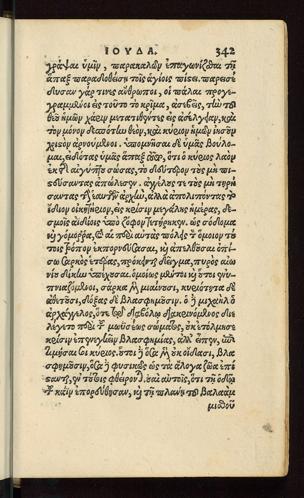 ΙΟΥΔΑ. 342
γράψαι ὑμῖν, παρακαλῶν ἐπαγωνίζεσθαι τῇ
ἅπαξ παραδοθείσῃ τοῖς ἁγίοις πίστει. παρεισέ
δυσαν γάρ τινες ἄνθρωποι, οἱ πάλαι προγε-
γραμμένοι εἰς τοῦτο τὸ κρίμα, ἀσεβεῖς, τὴν τοῦ
θεοῦ ἡμῶν χάριν μετατιθέντες εἰς ἀσέλγειαν, καὶ
τὸν μόνον δεσπότην θεὸν, καὶ κύριον ἡμῶν ἰησοῦν
χριστὸν ἀρνούμενοι. ὑπομνῆσαι δὲ ὑμᾶς βούλο-
μαι, εἰδότας ὑμᾶς ἅπαξ τοῦτο, ὅτι ὁ κύριος λαὸν
ἐκ γῆς αἰγύπτου σώσας, τὸ δεύτερον τοὺς μὴ πι-
στεύσαντας ἀπώλεσεν. ἀγγέλους τε τοὺς μὴ τηρή
σαντας τὴν ἑαυτῶν ἀρχὴν, ἀλλὰ ἀπολιπόντας τὸ
ἴδιον οἰκητήριον, εἰς κρίσιν μεγάλης ἡμέρας, δε-
σμοῖς ἀϊδίοις ὑπὸ ζόφον τετήρηκεν. ὡς σόδομα
καὶ γόμοῤῥα, καὶ αἱ περὶ αὐτὰς πόλεις τὸν ὅμοιον τού
τοις τρόπον ἐκπορνεύσασαι, καὶ ἀπελθοῦσαι ὀπί-
σω σαρκὸς ἑτέρας, πρόκεινται δεῖγμα, πυρὸς αἰω
νίου δίκην ὑπέχουσαι. ὁμοίως μέντοι καὶ οὗτοι ἐνυ-
πνιαζόμενοι, σάρκα μὲν μιαίνουσι, κυριότητα δὲ
ἀθετοῦσι, δόξας δὲ βλασφημοῦσιν. ὁ δὲ μιχαὴλ ὁ
ἀρχάγγελος, ὅτε τῷ διαβόλῳ διακρινόμενος διε
λέγετο περὶ τοῦ μωϋσέως σώματος, οὐκ ἐτόλμησε
κρίσιν ἐπενεγκεῖν βλασφημίας, ἀλλ' εἶπεν, ἐπι
τιμήσαι σοι κύριος. οὗτοι δὲ ὅσα μὲν οὐκ οἴδασι, βλα
σφημοῦσιν, ὅσα δὲ φυσικῶς ὡς τὰ ἄλογα ζῶα ἐπί
στανται, ἐν τούτοις φθείρονται. οὐαὶ αὐτοῖς, ὅτι τῇ ὁδῷ
τοῦ κάϊν ἐπορεύθησαν, καὶ τῇ πλάνῃ τοῦ βαλαὰμ
μισθοῦ